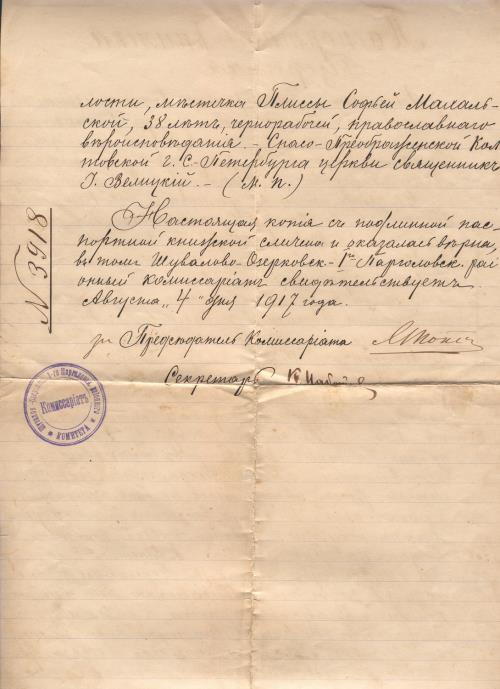 лости, мѣстечка Плиссы Софьей Малаль-
ской, 38 лѣтъ, чернорабочей, православнаго
вѣроисповѣданія. - Спасо-Преображенской Кол-
товской г. С.-Петербурга церкви священникъ
І. Велицкій. - (М. П.)
№ 3918
Настоящая копія съ подлинной пас-
портной книжкой слична и оказалась вѣрна,
въ томъ Шувалово-Озерковск.-1го Парголовск. рай
онный комиссаріатъ свидѣтельствуетъ.
Августа "4" дня 1917 года.
за Предсѣдатель Комиссаріата
Секретарь
Комиссаріатъ
КОМИТЕТА